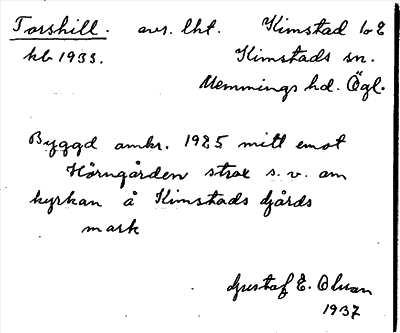 Torshill. avs. lht. Kimstad 1o8
kb 1933. Kimstads sn.
Memmings hd. Ögl.
Byggd omkr. 1925 mitt emot
Hörngården strax s. v. om
kyrkan å Kimstads gårds
mark
Gustaf E. Olson
1937